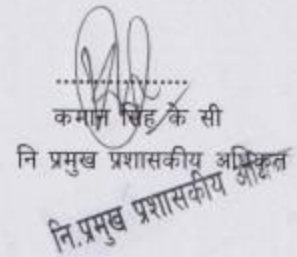 कमान सिंह के सी
नि प्रमुख प्रशासकीय अधिकृत
नि.प्रमुख प्रशासकीय अधिकृत